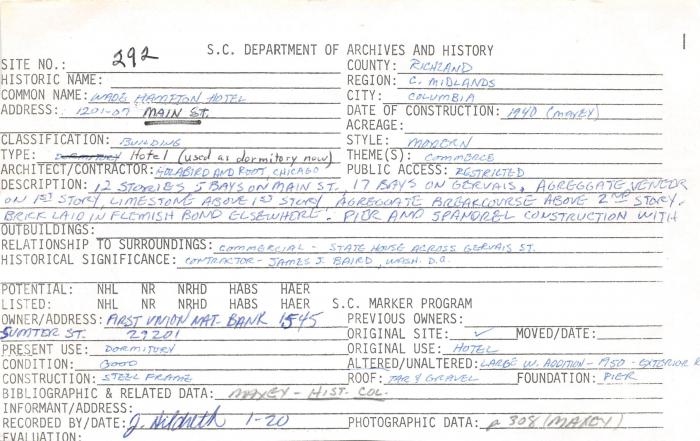 S.C. DEPARTMENT OF ARCHIVES AND HISTORY
SITE NO.: 292 COUNTY: RICHLAND
HISTORIC NAME: REGION: C. MIDLANDS
COMMON NAME: WADE HAMPTON HOTEL CITY: COLUMBIA
ADDRESS: 1201-07 MAIN ST. DATE OF CONSTRUCTION: 1940 (MAXEY)
ACREAGE:
CLASSIFICATION: BUILDING STYLE: MODERN
TYPE: DORMITORY Hotel (used as dormitory now) THEME(S): COMMERCE
ARCHITECT/CONTRACTOR: HOLABIRD AND ROOT, CHICAGO PUBLIC ACCESS: RESTRICTED
DESCRIPTION: 12 STORIES 5 BAYS ON MAIN ST., 17 BAYS ON GERVAIS. AGREGGATE VENEER
ON 1ST STORY, LIMESTONE ABOVE 1ST STORY, AGREGGATE BREAKCOURSE ABOVE 2ND STORY.
BRICK LAID IN FLEMISH BOND ELSEWHERE. PIER AND SPANDREL CONSTRUCTION WITH
OUTBUILDINGS:
RELATIONSHIP TO SURROUNDINGS: COMMERCIAL - STATE HOUSE ACROSS GERVAIS ST.
HISTORICAL SIGNIFICANCE: CONTRACTOR - JAMES J. BAIRD, WASH. D.C.
POTENTIAL: NHL NR NRHD HABS HAER
LISTED: NHL NR NRHD HABS HAER S.C. MARKER PROGRAM
OWNER/ADDRESS: FIRST UNION NAT. BANK 1545 PREVIOUS OWNERS:
SUMTER ST. 29201 ORIGINAL SITE: ✓ MOVED/DATE:
PRESENT USE: DORMITORY ORIGINAL USE: HOTEL
CONDITION: GOOD ALTERED/UNALTERED: LARGE W. ADDITION - 1950 - EXTERIOR R
CONSTRUCTION: STEEL FRAME ROOF: TAR & GRAVEL FOUNDATION: PIER
BIBLIOGRAPHIC & RELATED DATA: MAXEY - HIST. COL.
INFORMANT/ADDRESS:
RECORDED BY/DATE: J. Hildreth 1-20 PHOTOGRAPHIC DATA: p 308 (MAXEY)
EVALUATION: